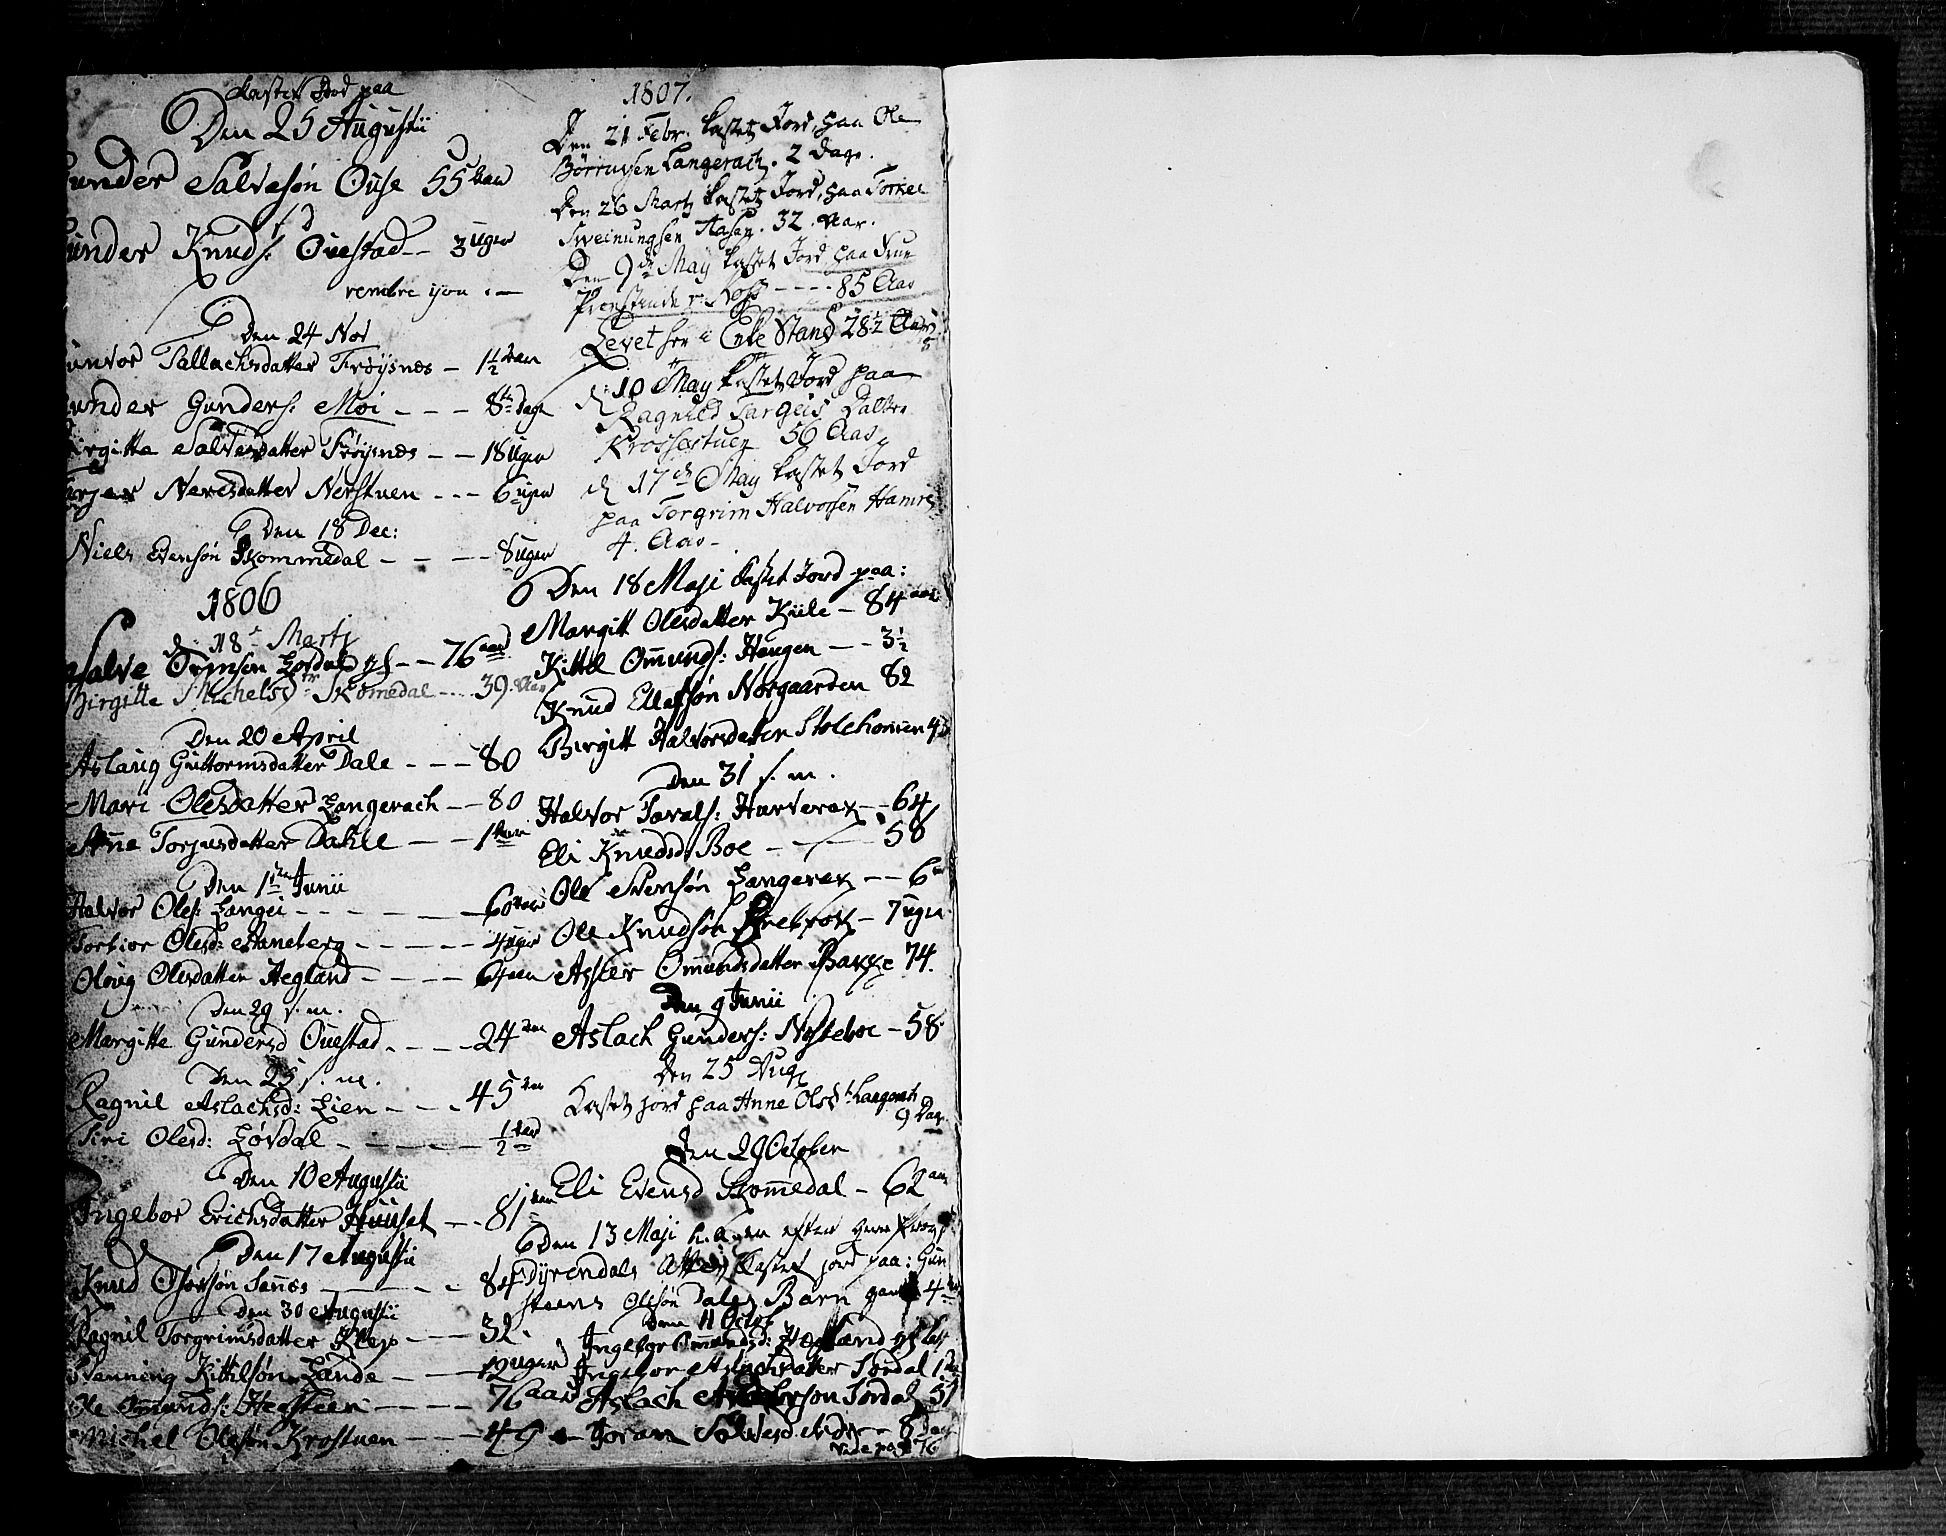 kastet Jord paa
Den 25 Augustii
Gunder Salvesøn Ouse 55 aar
Gunder Knuds: Ouestad -- 3 Uger
Den 24 Nov
Gunvor Tallachsdatter Frøysnes - 1½ aar
Gunder Gunders: Moi - - - 8te dage
Birgitte Salvesdatter Frøysnes - - 18 Uger
Neresdatter Nerstuen - - - 6 uger
Den 18 Dec:
Niels Evensøn Skommedal - - - - 8 uger
1806
d: 18 Martj
Salve Ormsen Løvdal - - 76 aar
Birgitte Michelsdtr Skomedal ---- 39. Aar
Den 20 April
Aslaug Guttormsdatter Dale - - - 80
Mari Olesdatter Langerach - - 80
Anne Torjusdatter Dahle - - 1 aar
Den 1ste Junii
Halvor Oles: Langei - - - - - 60 aar
Torbior Olesd: Aaneberg - - - - - 4 uger
Oloug Olesdatter Hegland - - - - 64 aar
Den 29 s. m.
Margitte Gundersd Ouestad - - - - 24 aar
Den 25 s. m.
Ragnil Aslachsd: Lien - - - - 45 aar
Siri Olesd: Løvdal - - - - - ½ aar
Den 10 Augustii
Ingebor Erichsdatter Huuset - - 81 aar
Den 17 Augustii
Knud Osorsøn Sennes - - - - 84
Den 30 Augustii
Ragnil Torgrimsdatter Klep - - - 32.
Kittilsøn Lande - - - - 12 uger
Ole Ommunds: Hegsteen - - - - 76 aar
Michel Olesøn Krostuen - - - 49
1807.
Den 21 Febr. kastet Jord, paa Ole
Børruusen Langerach. 2 dage.
Den 26 Martj kastet Jord, paa Torkel
Sveinungsen Aasen. 32. Aar.
Den 9de May kastet Jord paa Frue
---- 85 Aar
Levet her i Enke Stand 28½ Aar
d 10 May kastet Jord paa
Ragnild Targeis Datter
Krossestuen 56 Aar
d 17de May kastet Jord
paa Torgrim Halvorsen Hamre
4. Aar -
Den 18 Maji kastet Jord paa:
Margitt Olesdatter Kiile - 84 aar
Kittil Ommunds: Haugen - - 3½
Knud Ellefsøn Norgaarden 82
Birgitt Halvorsdatter Stolehommen
Den 31 s. m.
Halvor Tarals: Hurverak - - 64
Eli Knudsd: Boe - - - 58
Ole Evensøn Langerak - - 6
Ole Knudsøn - 7 uger
Asster Ommundsdatter Bakke 74.
Den 9 Junii
Aslach Gunders: Nysteboe - 58
Den 25 Aug
Kastet jord paa Anne Olsdtr Langerach
9 Dage
Den 29 October
Eli Evensd Skomedal - 62 aar
Den 13 Maji efter
Dyrendals Attest kastet jord paa: Gun
steens Olesøn Dales Barn 4
Den 11 Octob
Ingebor Ommundsd: Hegland
Ingebor Aslachsdatter Tordal 1
Aslach Tordal 51
Joran Salvesd - - 8 Dage
Vide pag: 76